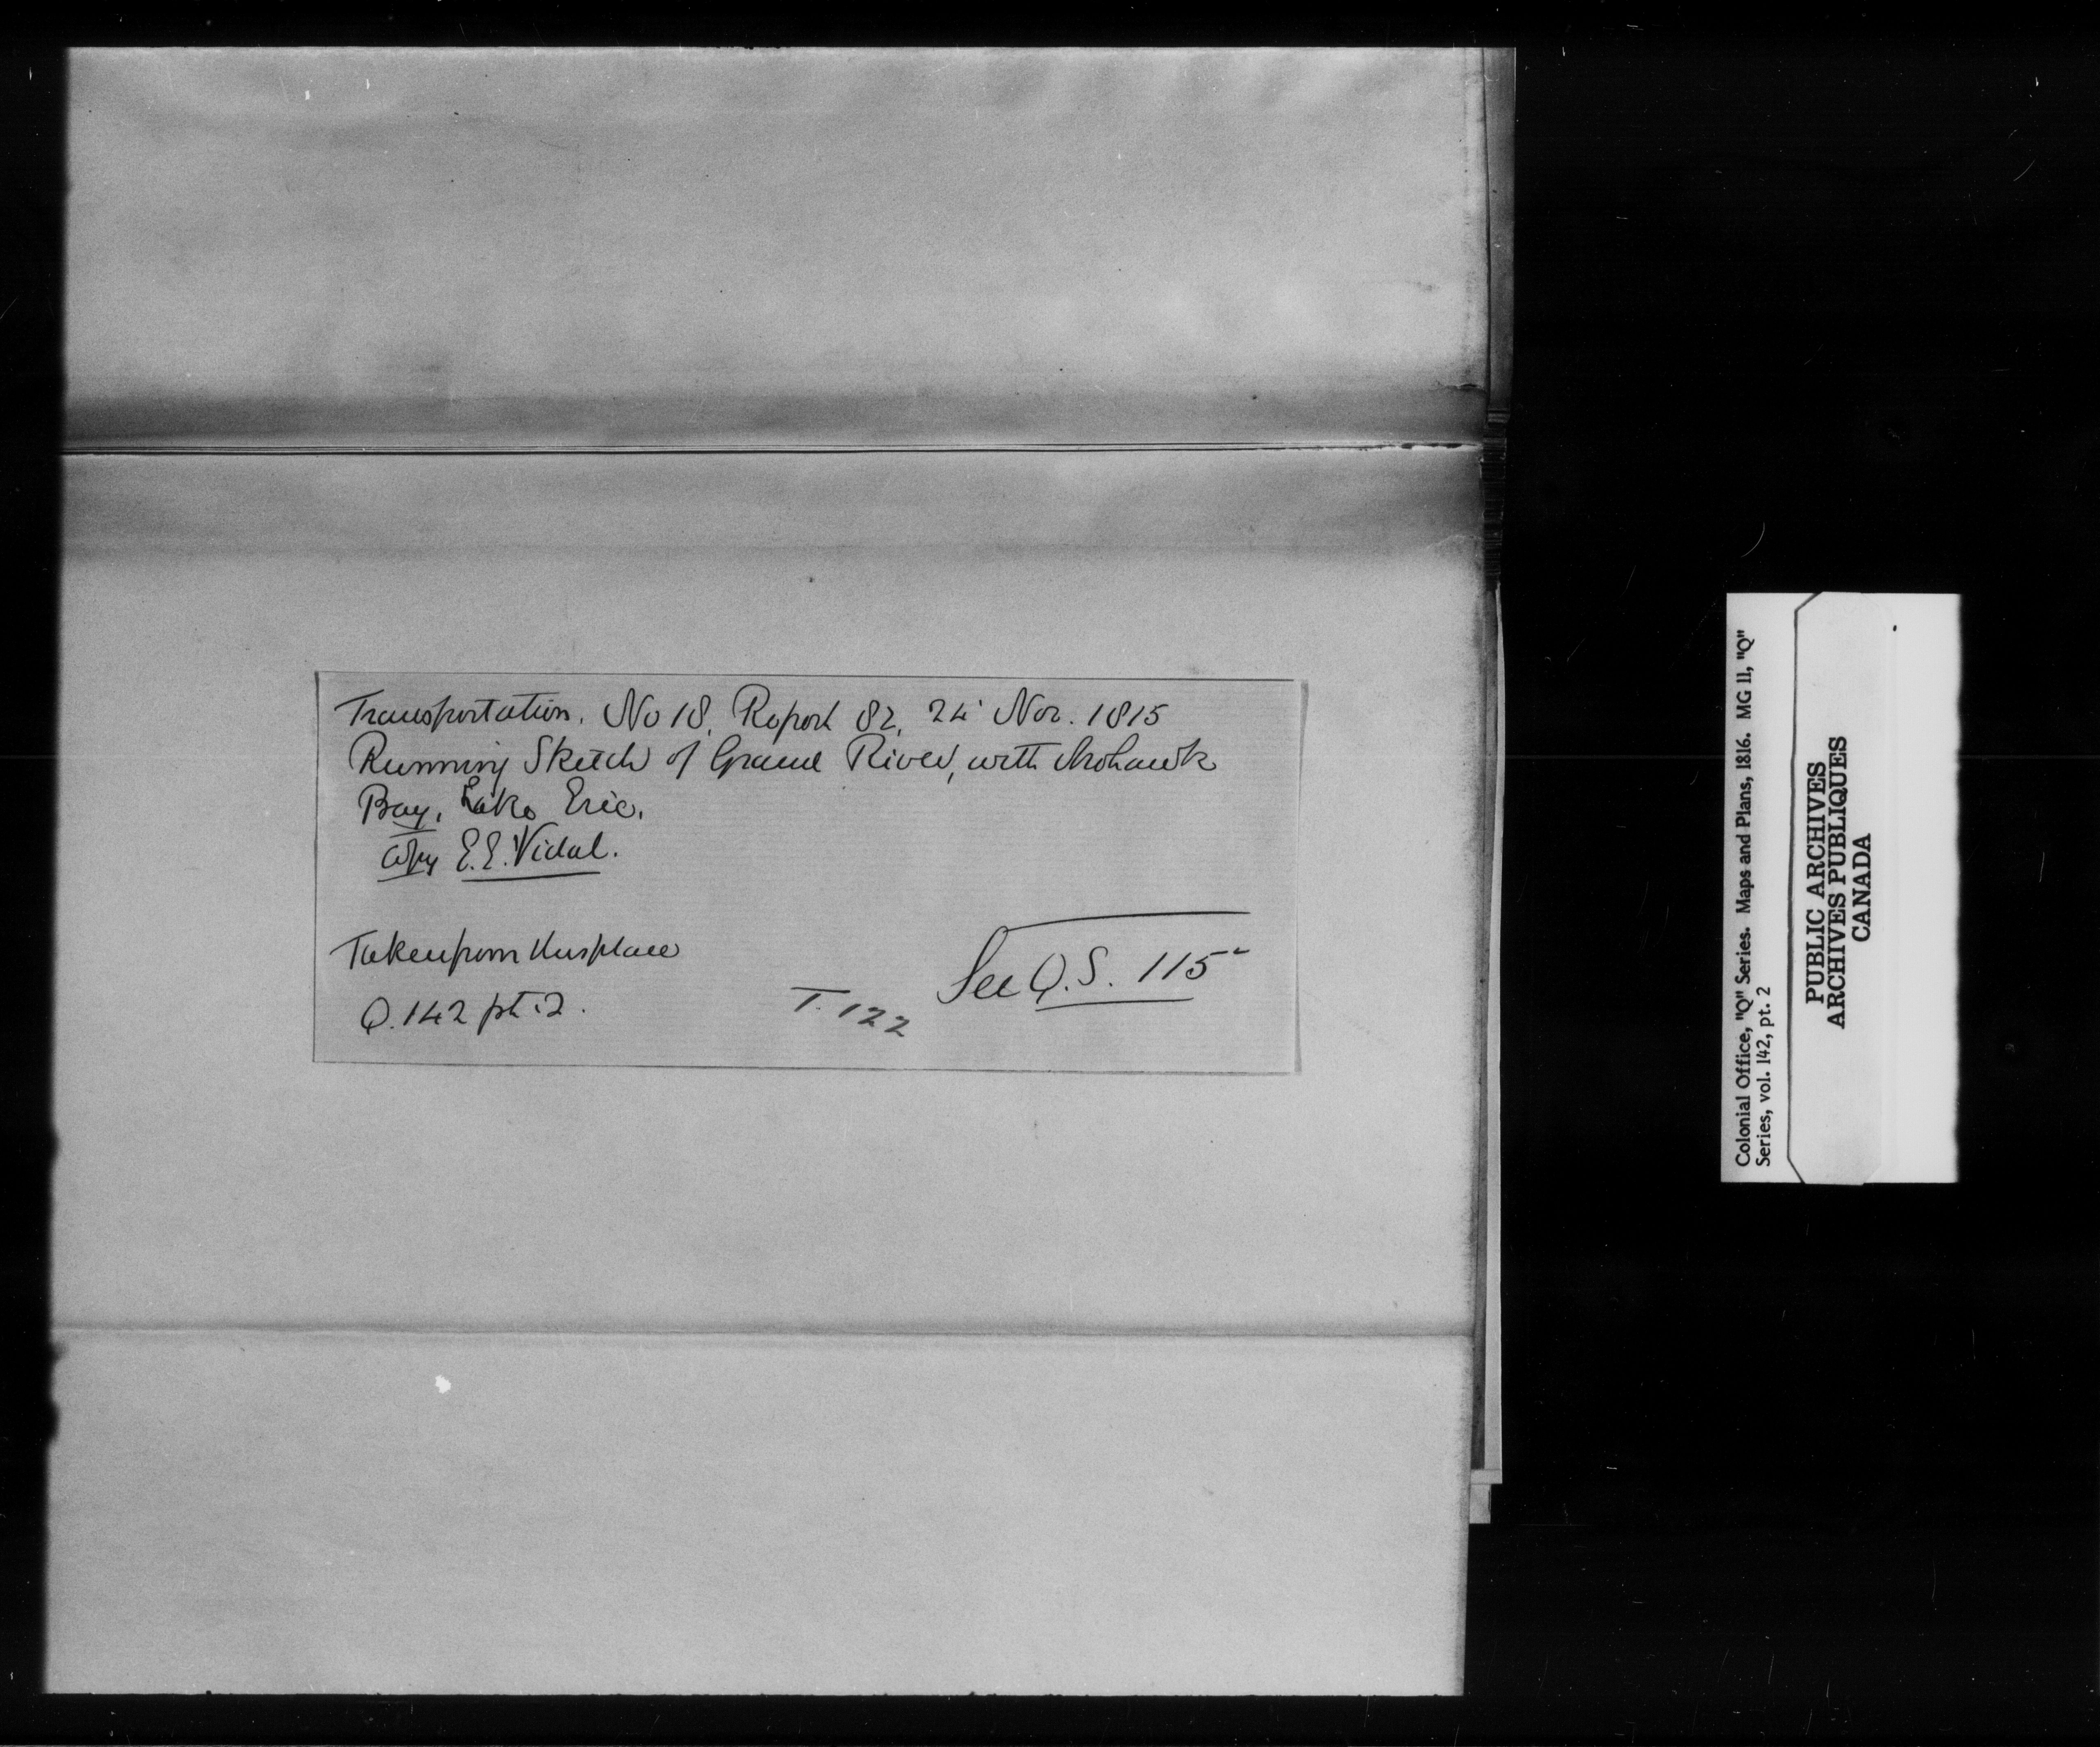 Transportation. No 18. Report 82. 24 Nov. 1815
Running Sketch of Grand River, with Mohawk
Bay, Lake Erie.
Copy E.E. Vidal.
Taken from this place
Q. 142 pt. 2.
T. 122
See Q.S. 115
Colonial Office, "Q" Series. Maps and Plans, 1816. MG 11, "Q"
Series, vol. 142, pt. 2
PUBLIC ARCHIVES
ARCHIVES PUBLIQUES
CANADA